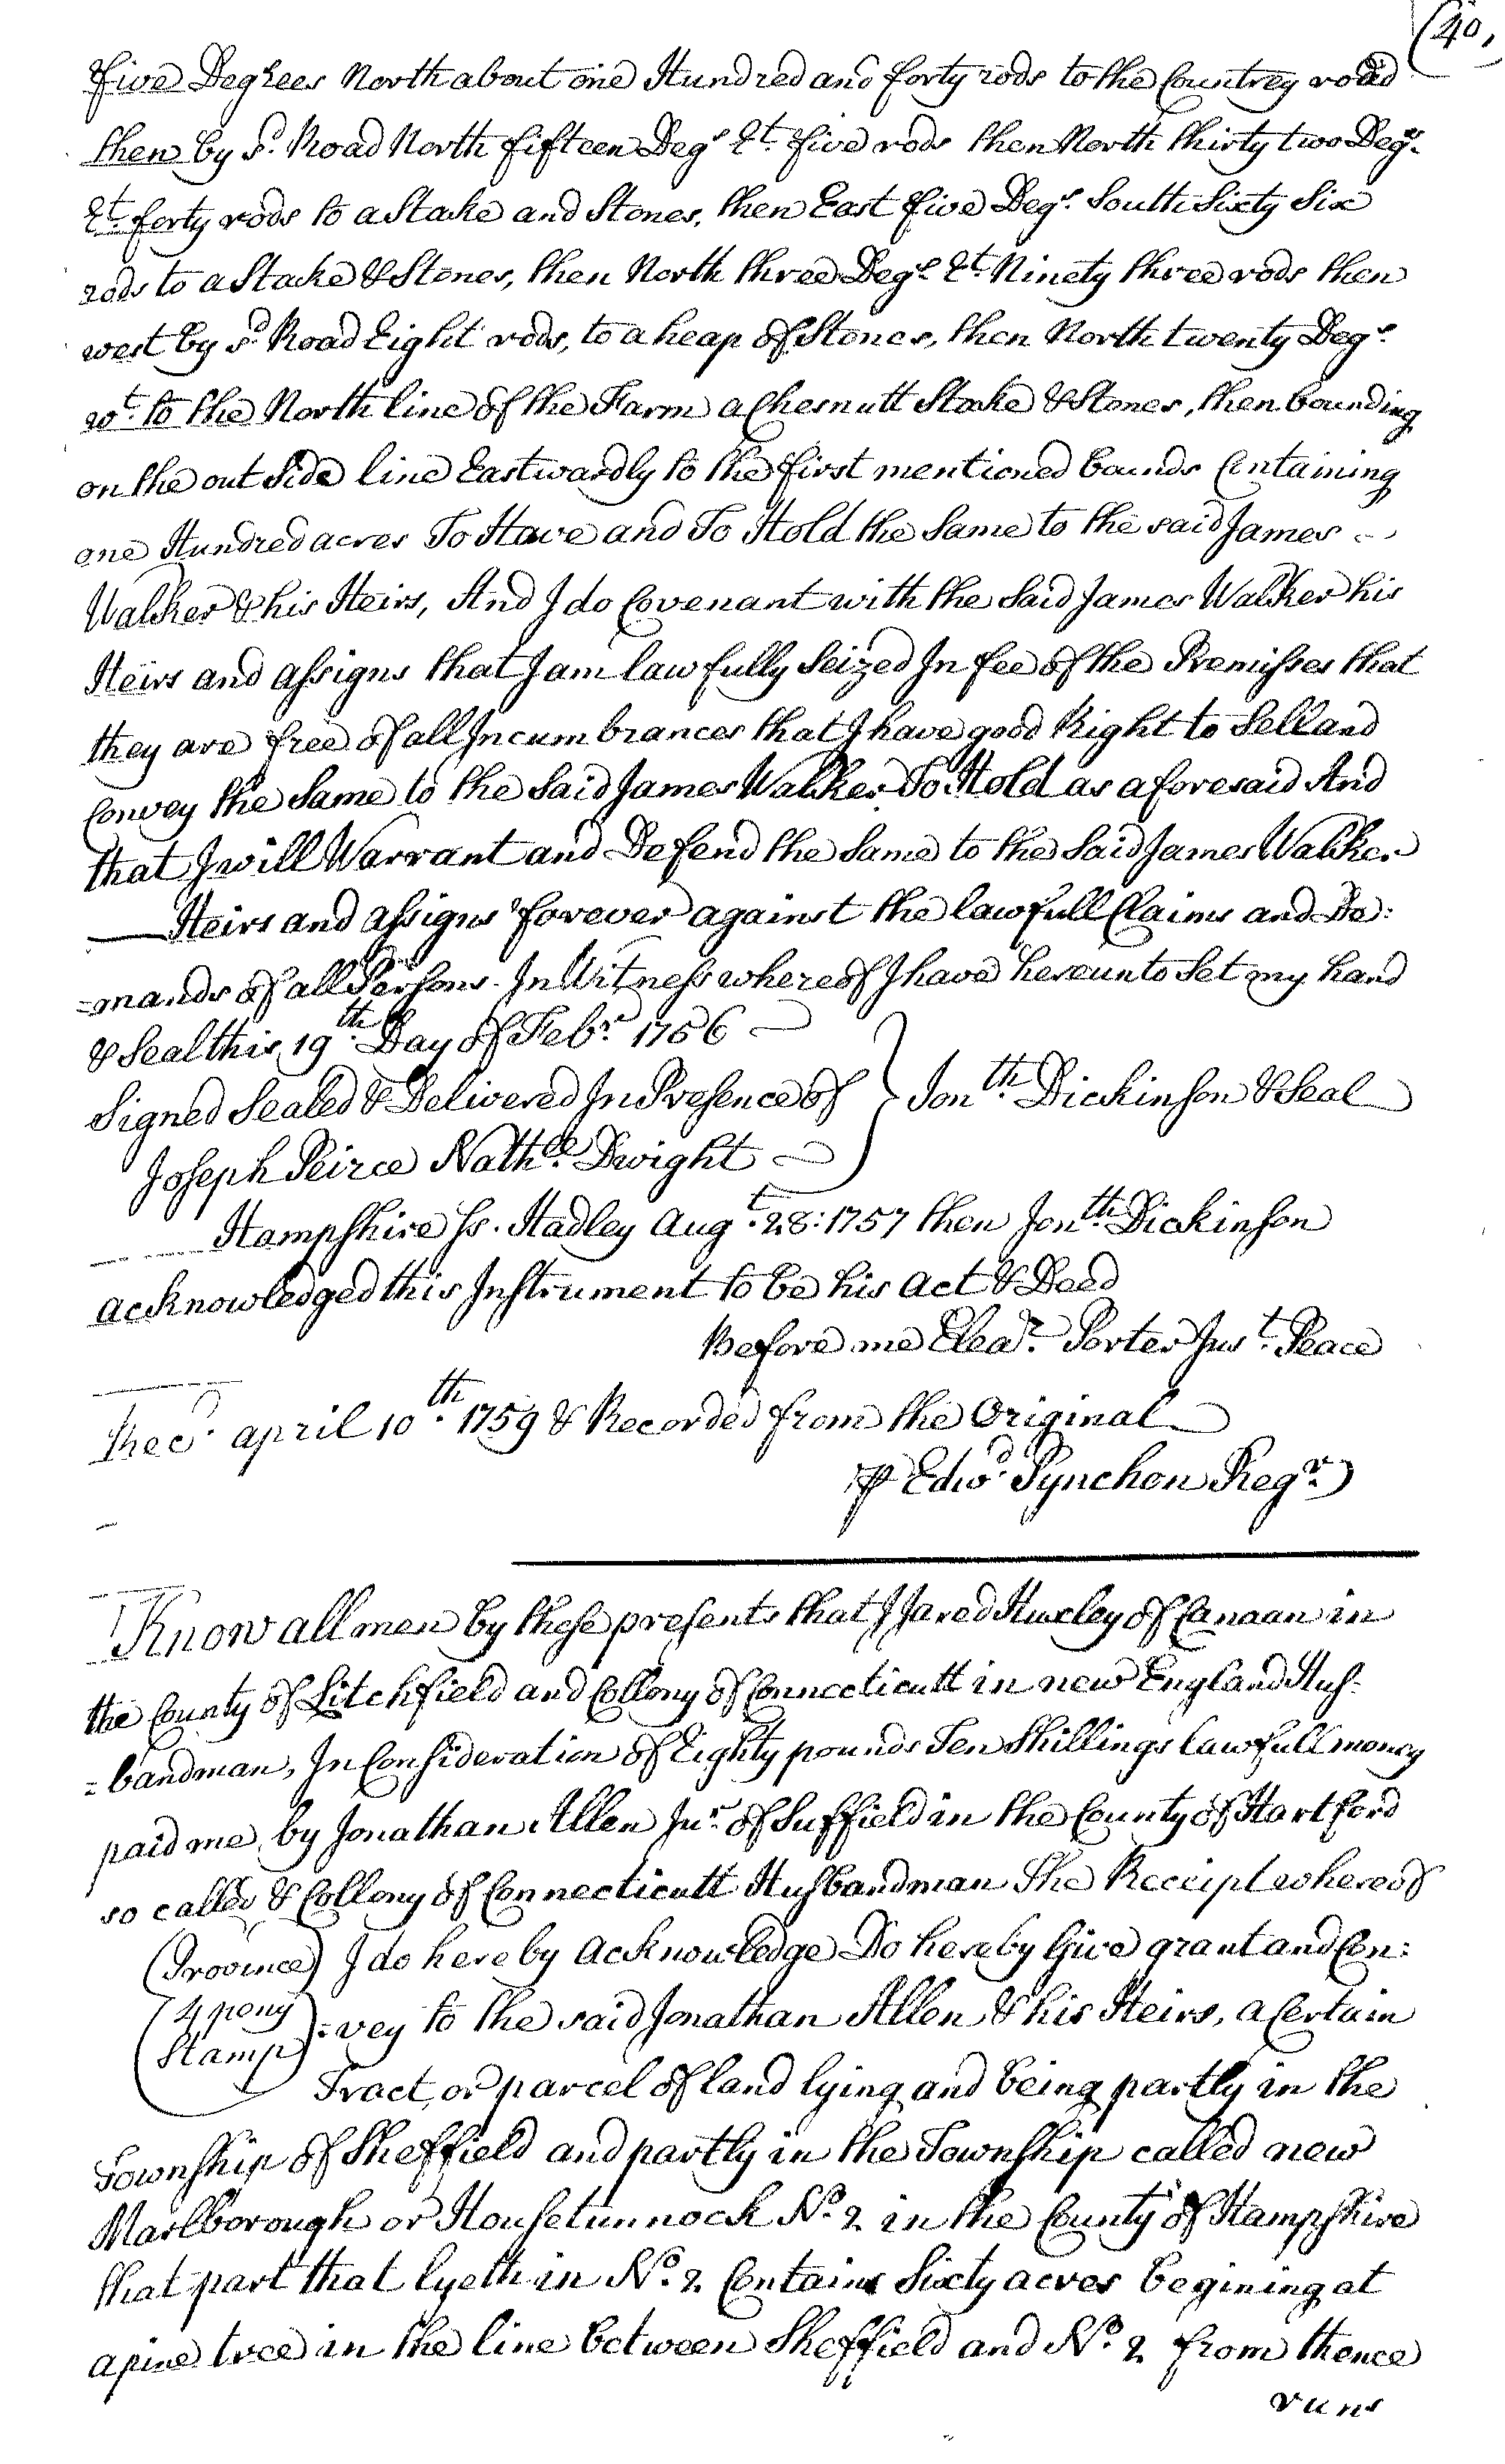 (40,
Five Degrees North about one Hundred and forty rods to the Countrey road
then by sd. Road North fifteen Degs. Et. five rods then North thirty two Degrs.
Et. forty rods to a Stake and Stones, then East five Degs. South Sixty Six
rods to a Stake & Stones, then North three Degs. Et. Ninety three rods then
west by sd. Road Eight rods, to a heap of Stones, then North twenty Degs.
wt. to the North line of the Farm a Chesnutt Stake & Stones, then bounding
on the out side line Eastwardly to the first mentioned bounds Containing
one Hundred acres To Have and To Hold the Same to the said James
Walker & his Heirs, And I do Covenant with the Said James Walker his
Heirs and assigns that I am lawfully Seized In fee of the Premisses that
they are free of all Incumbrances that I have good Right to Sell and
Convey the Same to the Said James Walker To Hold as aforesaid And
that I will Warrant and Defend the Same to the Said James Walker
Heirs and assigns forever against the lawfull Claims and De:
=mands of all Persons. In Witness whereof I have hereunto Set my hand
& Seal this 19th. Day of Febr. 1756
Signed Sealed & Delivered In Presence of } Jonth. Dickinson & Seal
Joseph Peirce Nathll. Dwight
Hampshire ss. Hadley Augt. 28: 1757 then Jonth. Dickinson
acknowledged this Instrument to be his act & Deed
Before me Eleazr. Porter Just. Peace
Recd. april 10th. 1759 & Recorded from the Original
⅌ Edwd. Pynchon Regr.
Know all men by these presents that I Jared Huxley of Canaan in
the County of Litchfield and Collony of Connecticutt in new England Hus=
=bandman, In Consideration of Eighty pounds Ten Shillings lawfull money
paid me by Jonathan Allen Junr. of Suffield in the County of Hartford
so called & Collony of Connecticutt Husbandman The Receipt whereof
(Province) I do hereby acknowledge Do hereby Give grant and Con:
(4 peny =vey to the said Jonathan Allen & his Heirs, a Certain
Stamp)
Tract or parcel of land lying and being partly in the
Township of Sheffield and partly in the Township called new
Marlborough or Housetunnock No. 2 in the County of Hampshire
that part that lyeth in No. 2 Contains Sixty acres begining at
a pine tree in the line between Sheffield and No. 2 from thence
runs